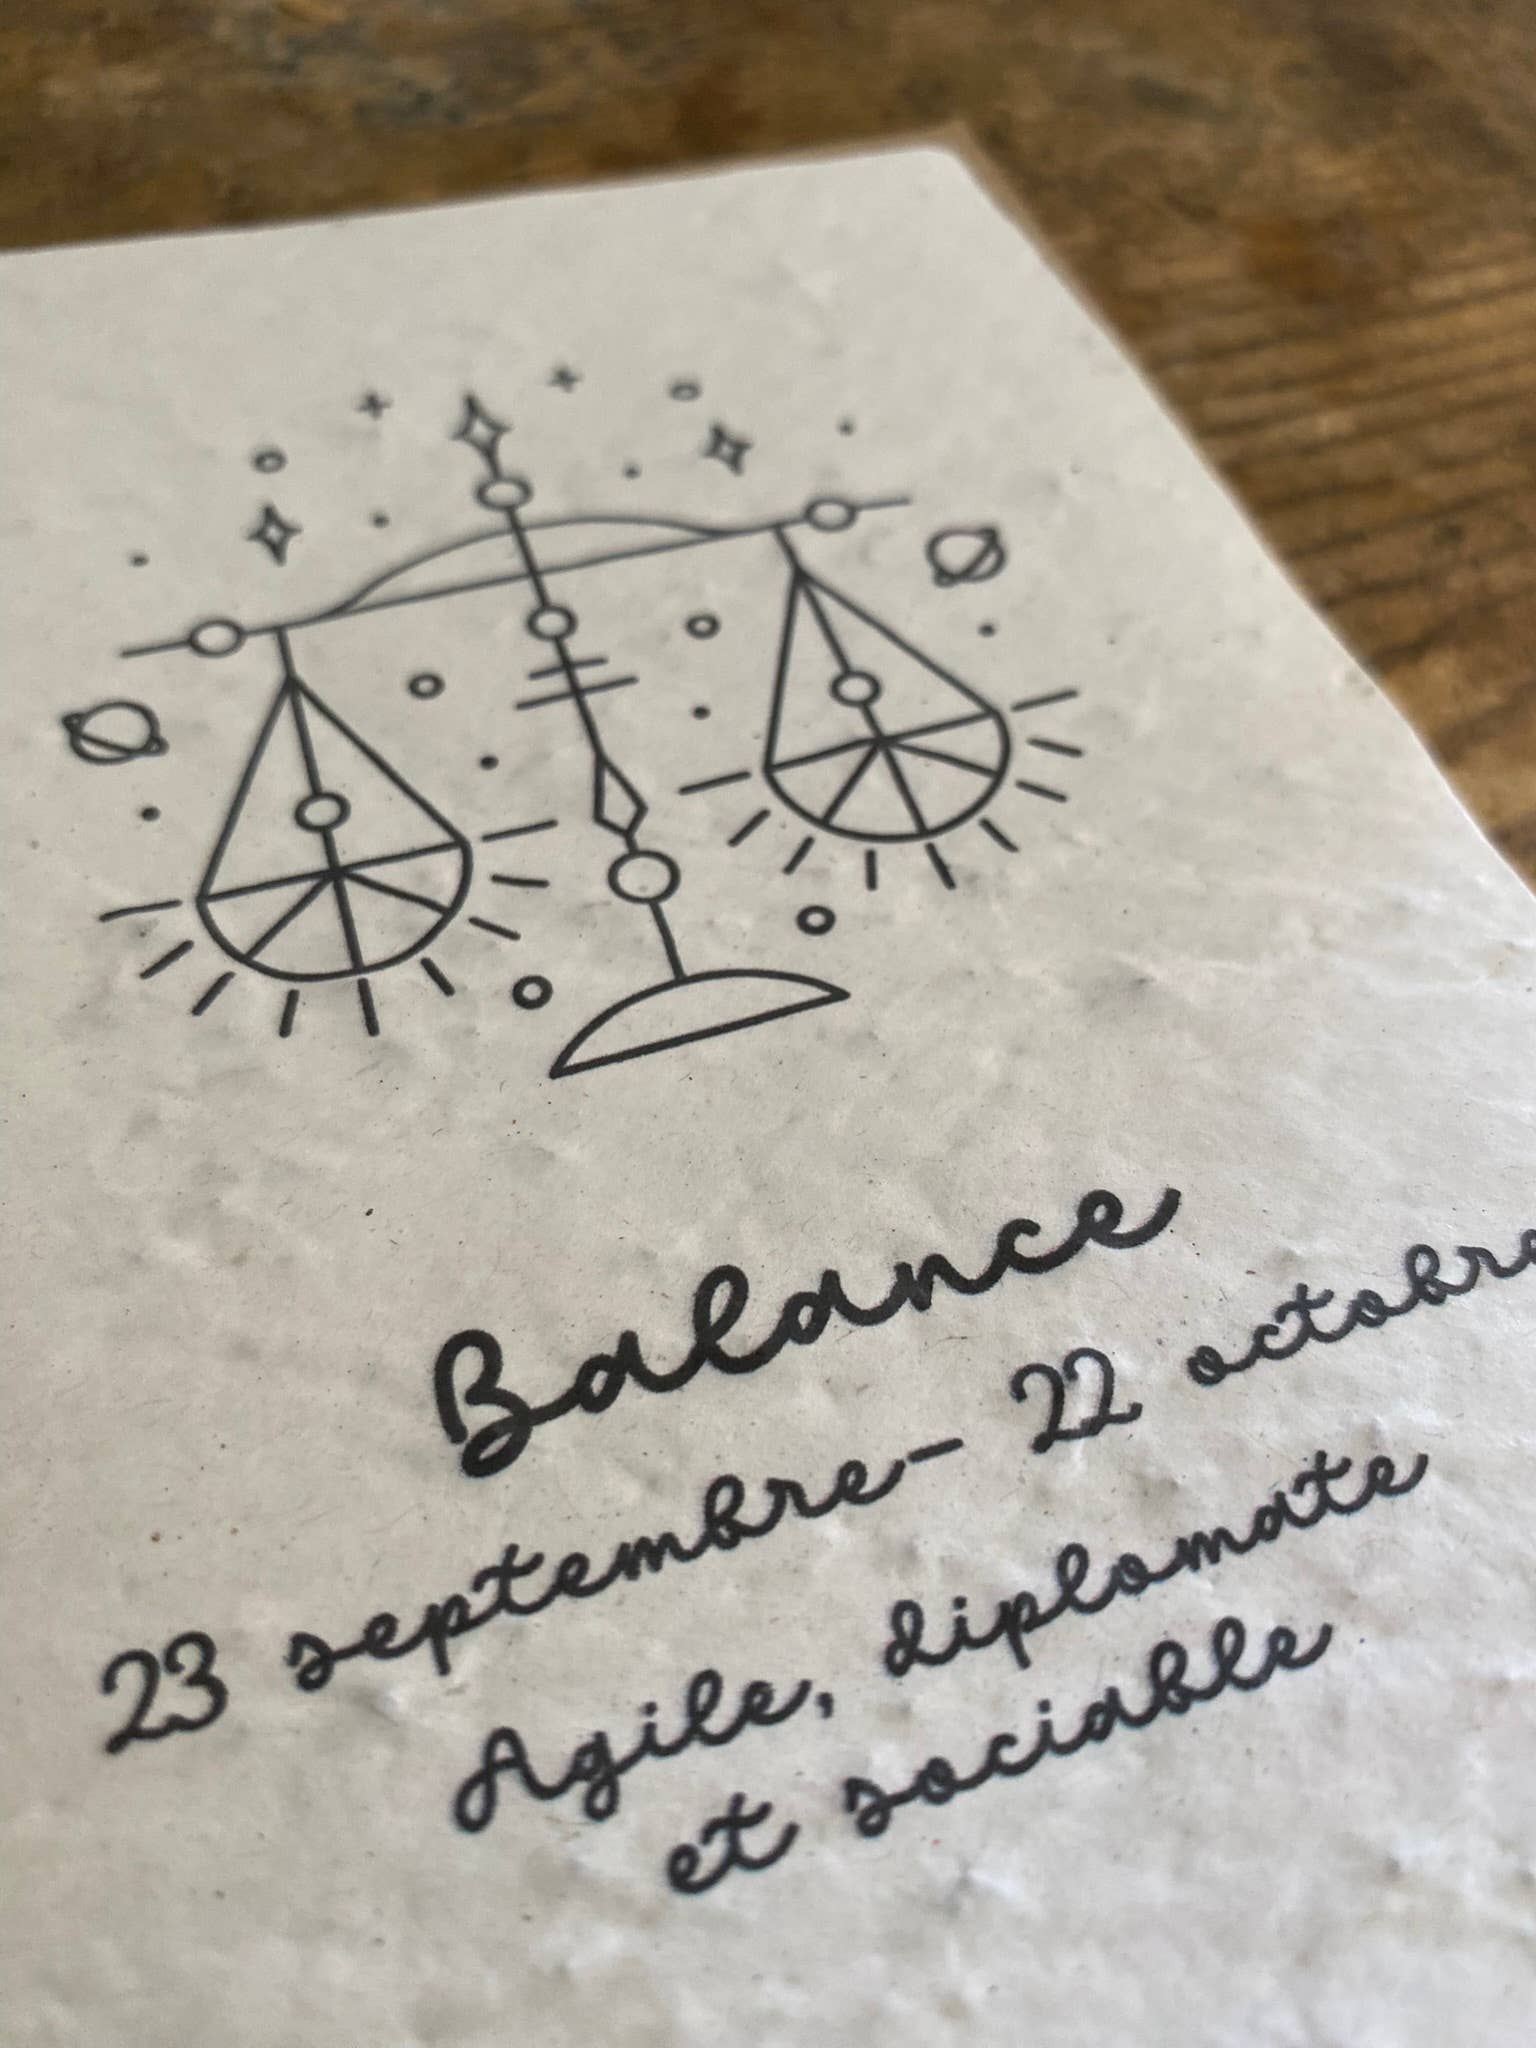 Balance
23 septembre - 22 octobre
Agile, diplomate
et sociable